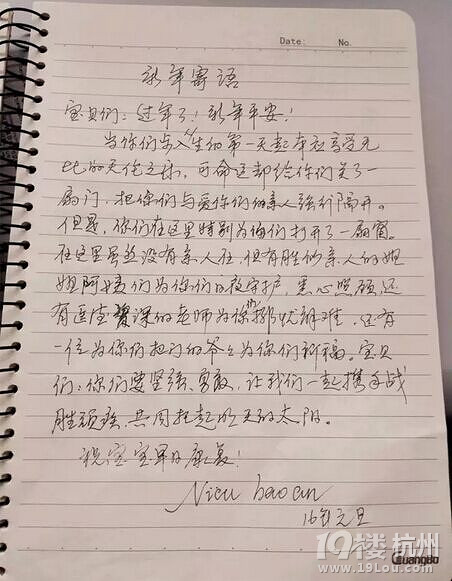 Date: No.
新年寄语
宝贝们：过年了！新年平安！
当你们与人生的第一天起本应享受无
比的天伦之乐，可命运却给你们关了一
扇门，把你们与爱你们的亲人强行隔开。
但是，你们在这里特别为你们打开了一扇窗。
在这里虽然没有亲人在，但有胜似亲人的姐
姐阿姨们为你们日夜守护，悉心照顾，还
有医德 的老师为你们排忧解难，还有
一位为你们把门的爷爷为你们祈福。宝贝
们：你们要坚强、勇敢，让我们一起携手战
胜顽强，共同托起明天的太阳。
祝宝宝早日康复！
Nicu baoan
16年元旦
19楼 杭州
www.19Lou.com
GuangBo